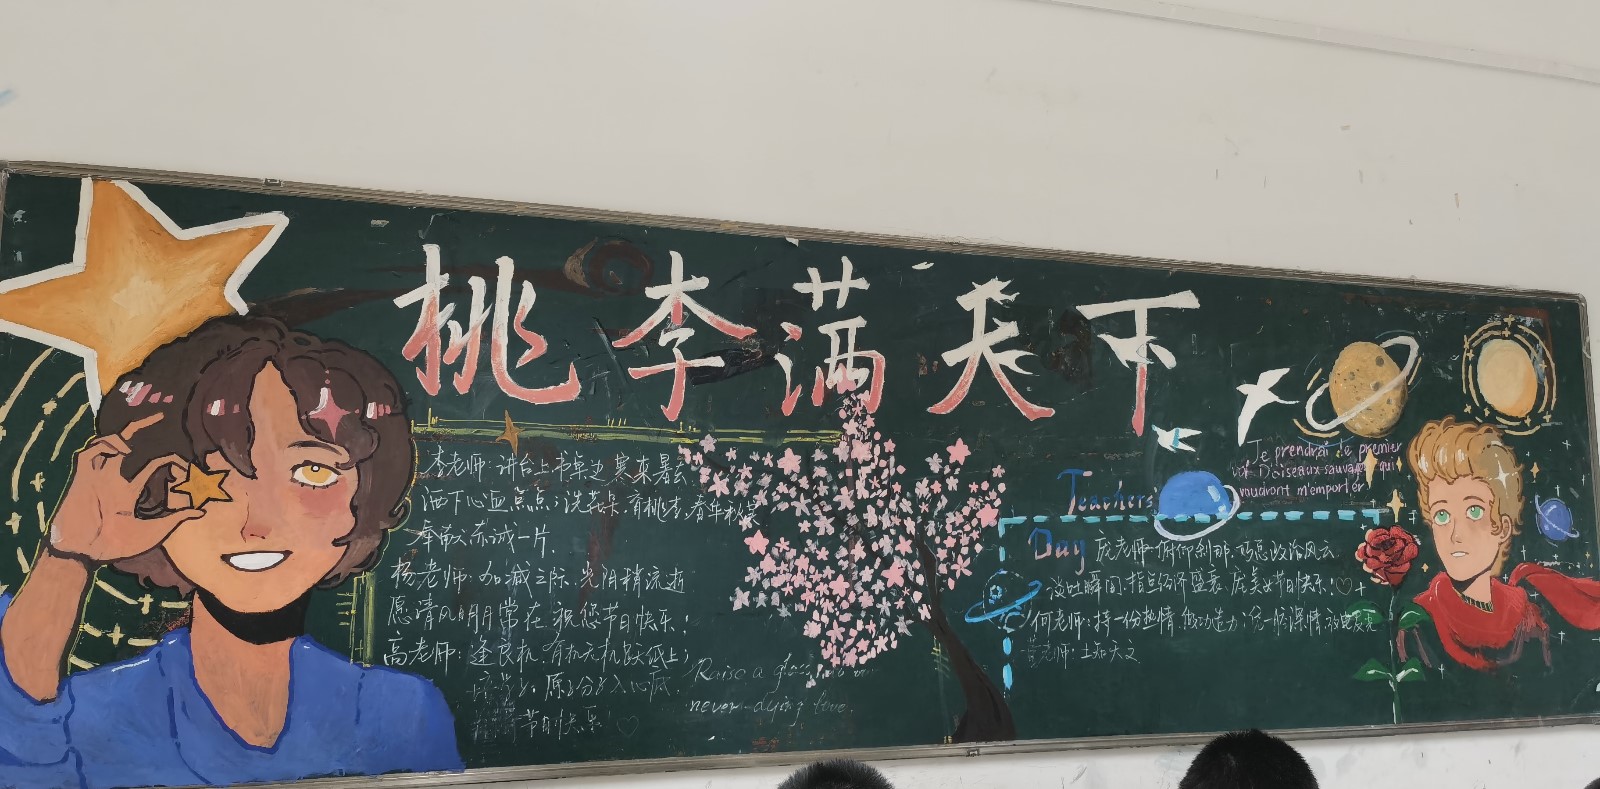 桃李满天下
李老师:讲台上书桌边寒来暑去
洒下心血点点;浇花朵,育桃李,春华秋实
奉献赤诚一片.
杨老师:加减之际,光阴稍流逝
愿清风明月常在,祝您节日快乐!
高老师:逢良机,有机无机跃纸上;
原子分子入心底.
节日快乐!♡
Raise a glass
never-dying love.
Teachers
Day
Je prendrai le premier
D'oiseaux sauvages qui
voudront m'emporter
庞老师:俯仰刹那,可览政治风云
谈吐瞬间,指点经济盛衰.庞美女节日快乐!♡
何老师:持一份热情,做功造力;统一腔深情,放电发光
老师:上知天文